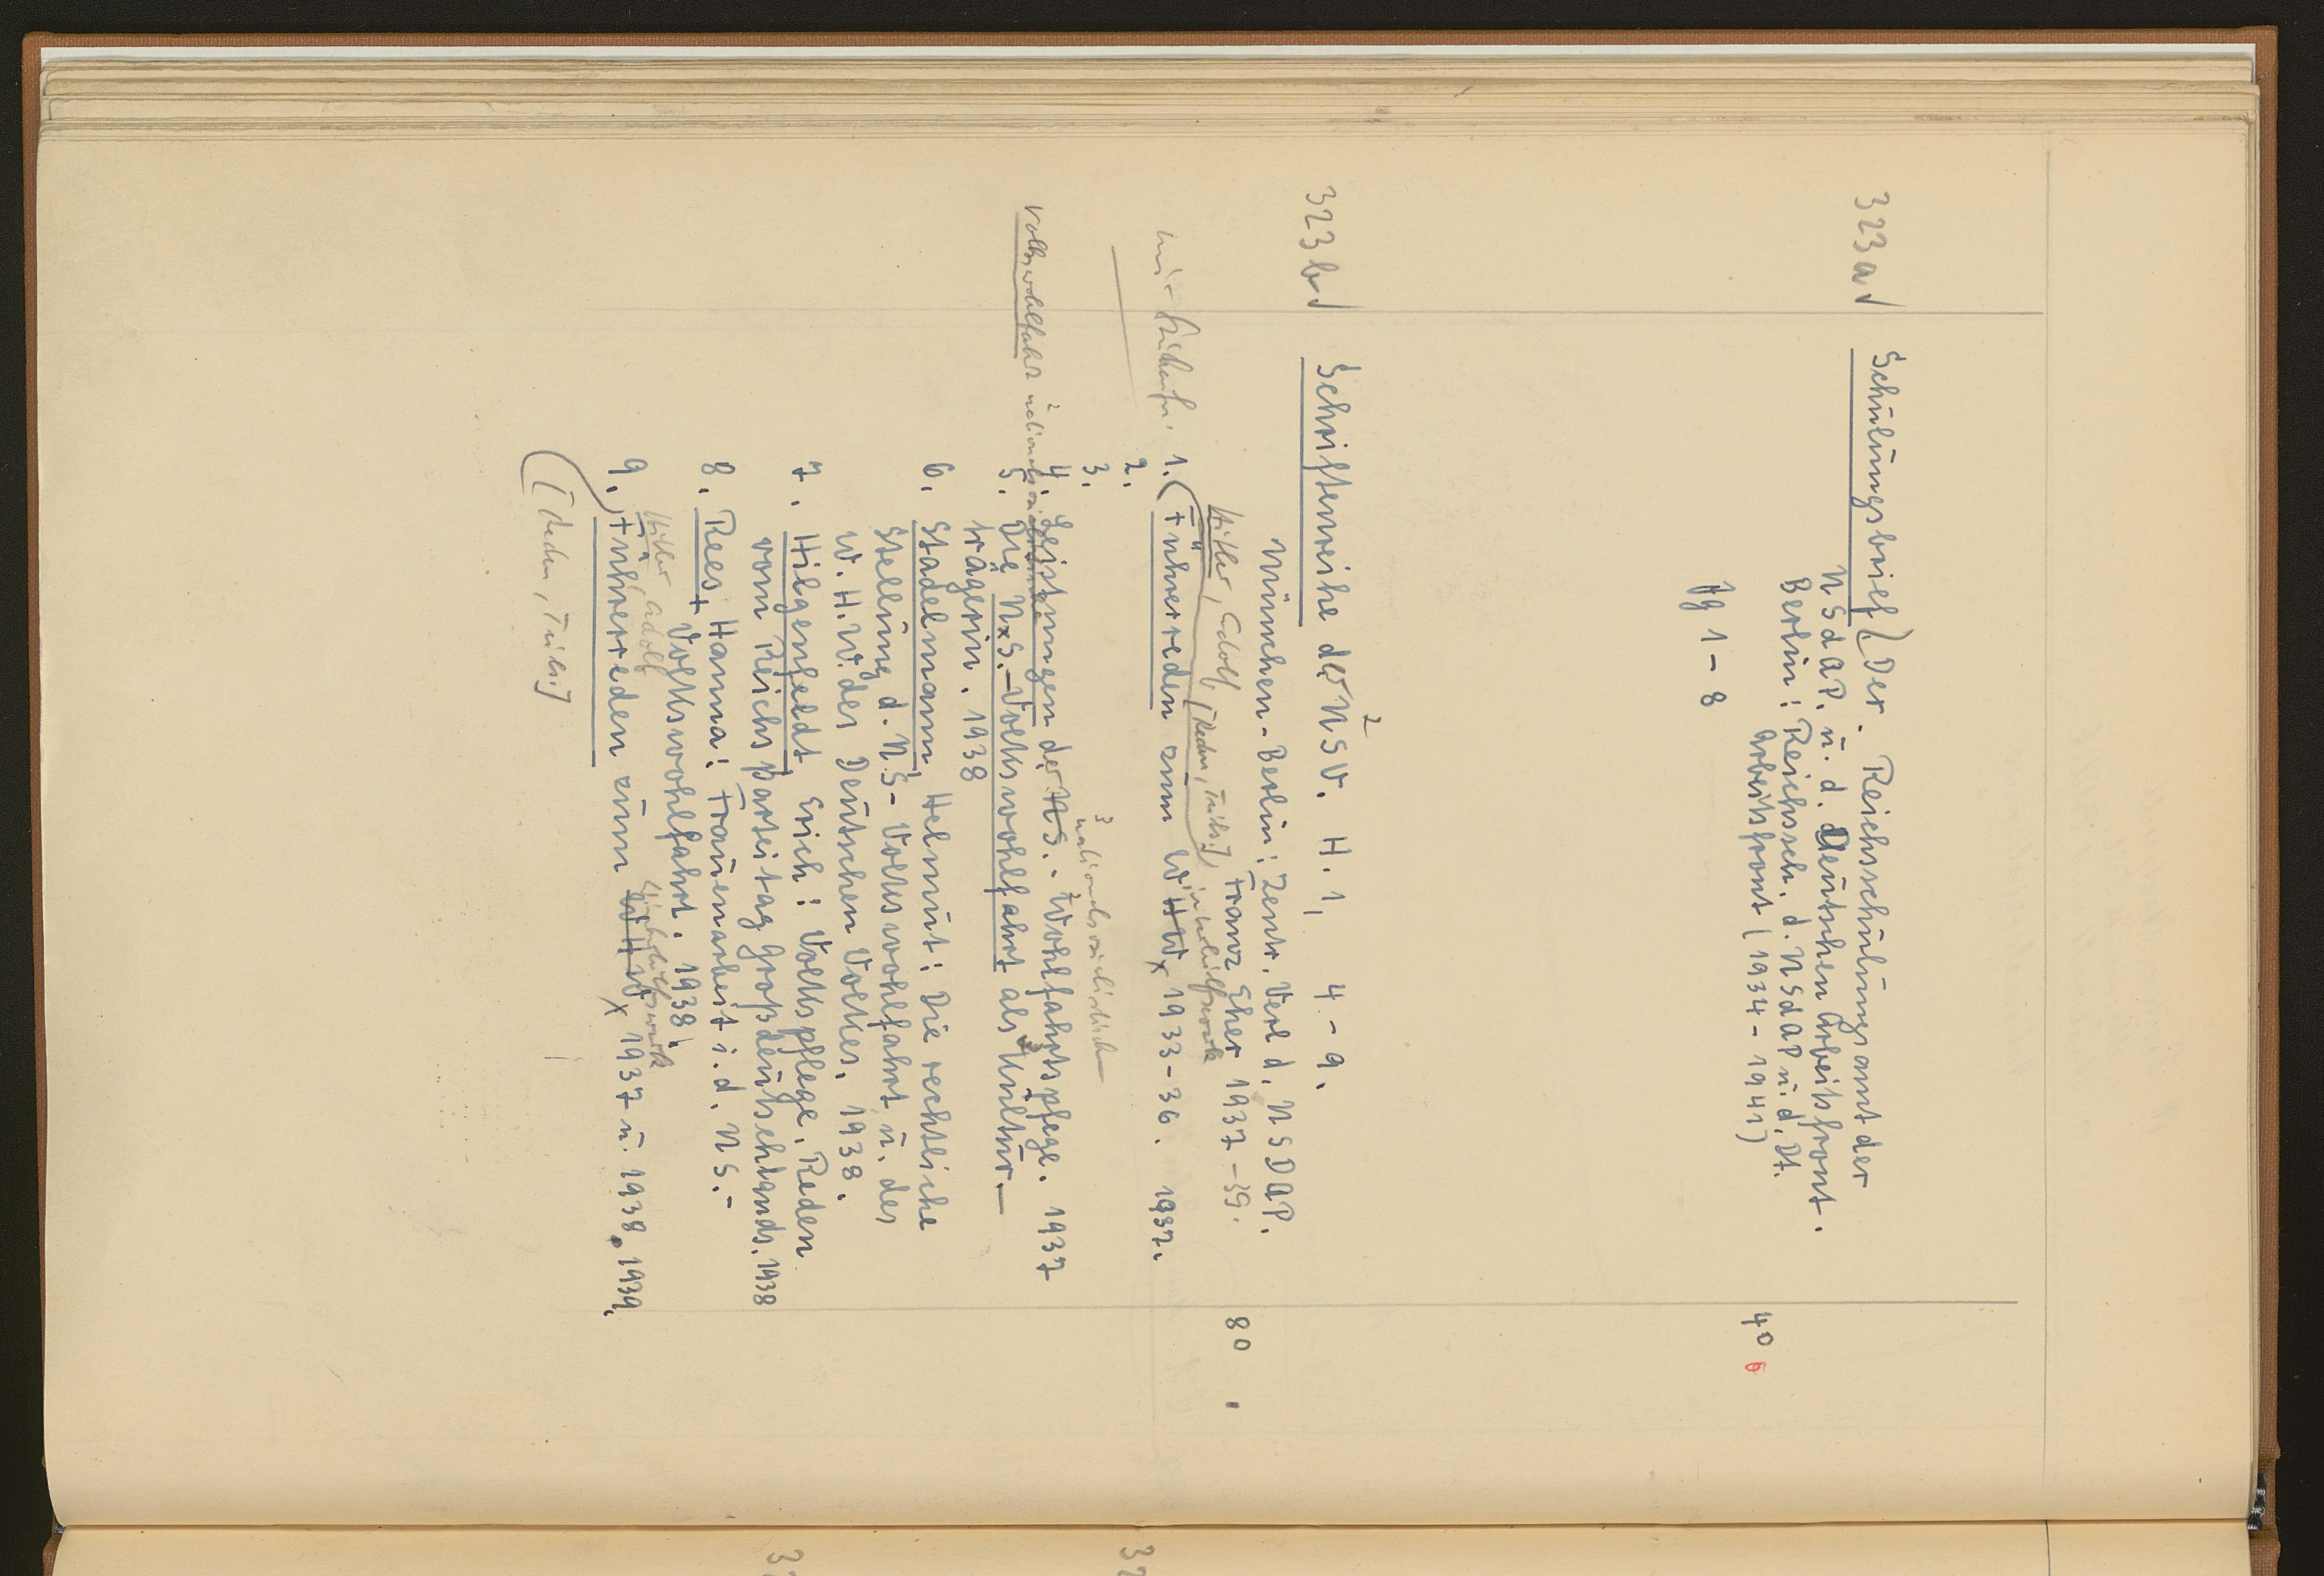 323a√
Schulungsbrief. (Der. Reichsschulungsamt der
NSdAP. u. d. Deutschen Arbeitsfront.
Berlin: Reichssch. d. NSdAP u. d. Dt.
Arbeitsfront (1934-1941)
40
6
Jg 1-8
323b√
Schriftenreihe der NSV. H. 1, 4-9.
2
München-Berlin: Zentr. Verl d. NSDAP.
Franz Eher 1937-39.
80
Hitler, Adolf, [Reden,
1. (Führerreden zum WHW x 1933-36. 1937.
2.
3.
3
nationalsozialistische
4. Leistungen der NS. Wohlfahrtspflege. 1937
Volkswohlfahrt
2
5. Die N.S.-Volkswohlfahrt als Kultur-
trägerin. 1938
6. Stadelmann, Helmut: Die rechtliche
Stellung d. NS-Volkswohlfahrt u. des
W.H.W. des Deutschen Volkes. 1938.
7. Hilgenfeldt, Erich: Volkspflege. Reden
vom Reichsparteitag Großdeutschlands. 1938
8. Rees, Hanna: Frauenarbeit i. d. NS.-
Volkswohlfahrt. 1938.
Hitler, Adolf
9. Führerreden zum WHW x 1937 u. 1938. 1939.
32
32